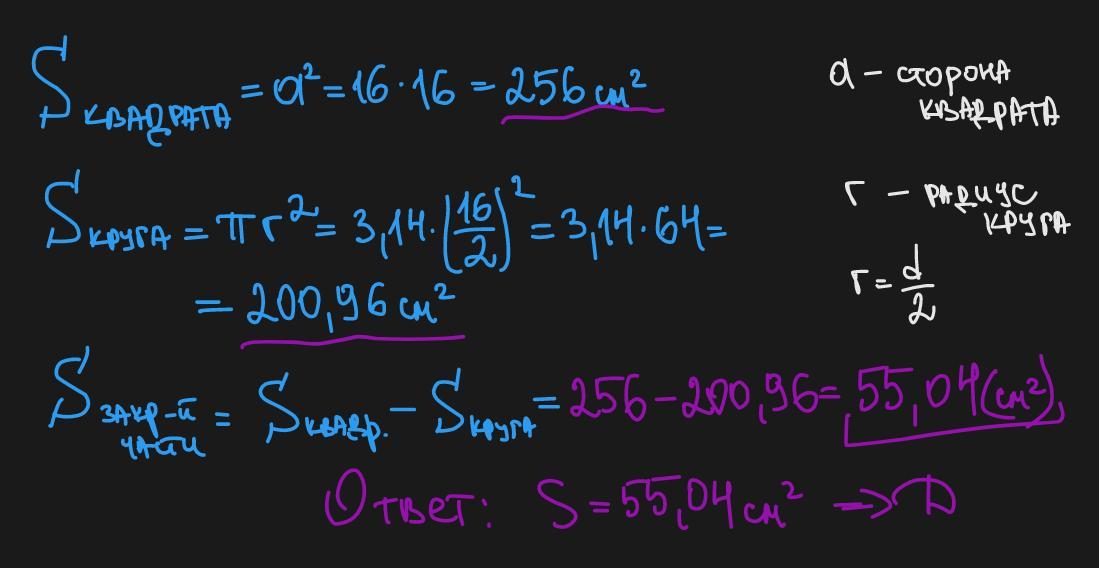 S КВАДРАТА = a² = 16 · 16 = 256 см²
a – сторона
КВАДРАТА
S КРУГА = πr² = 3,14 · (16/2)² = 3,14 · 64 =
= 200,96 см²
r – радиус
КРУГА
r = d/2
S ЗАКР-Й ЧАСТИ = S КВАДР. – S КРУГА = 256 – 200,96 = 55,04 (см²)
Ответ: S = 55,04 см² → D